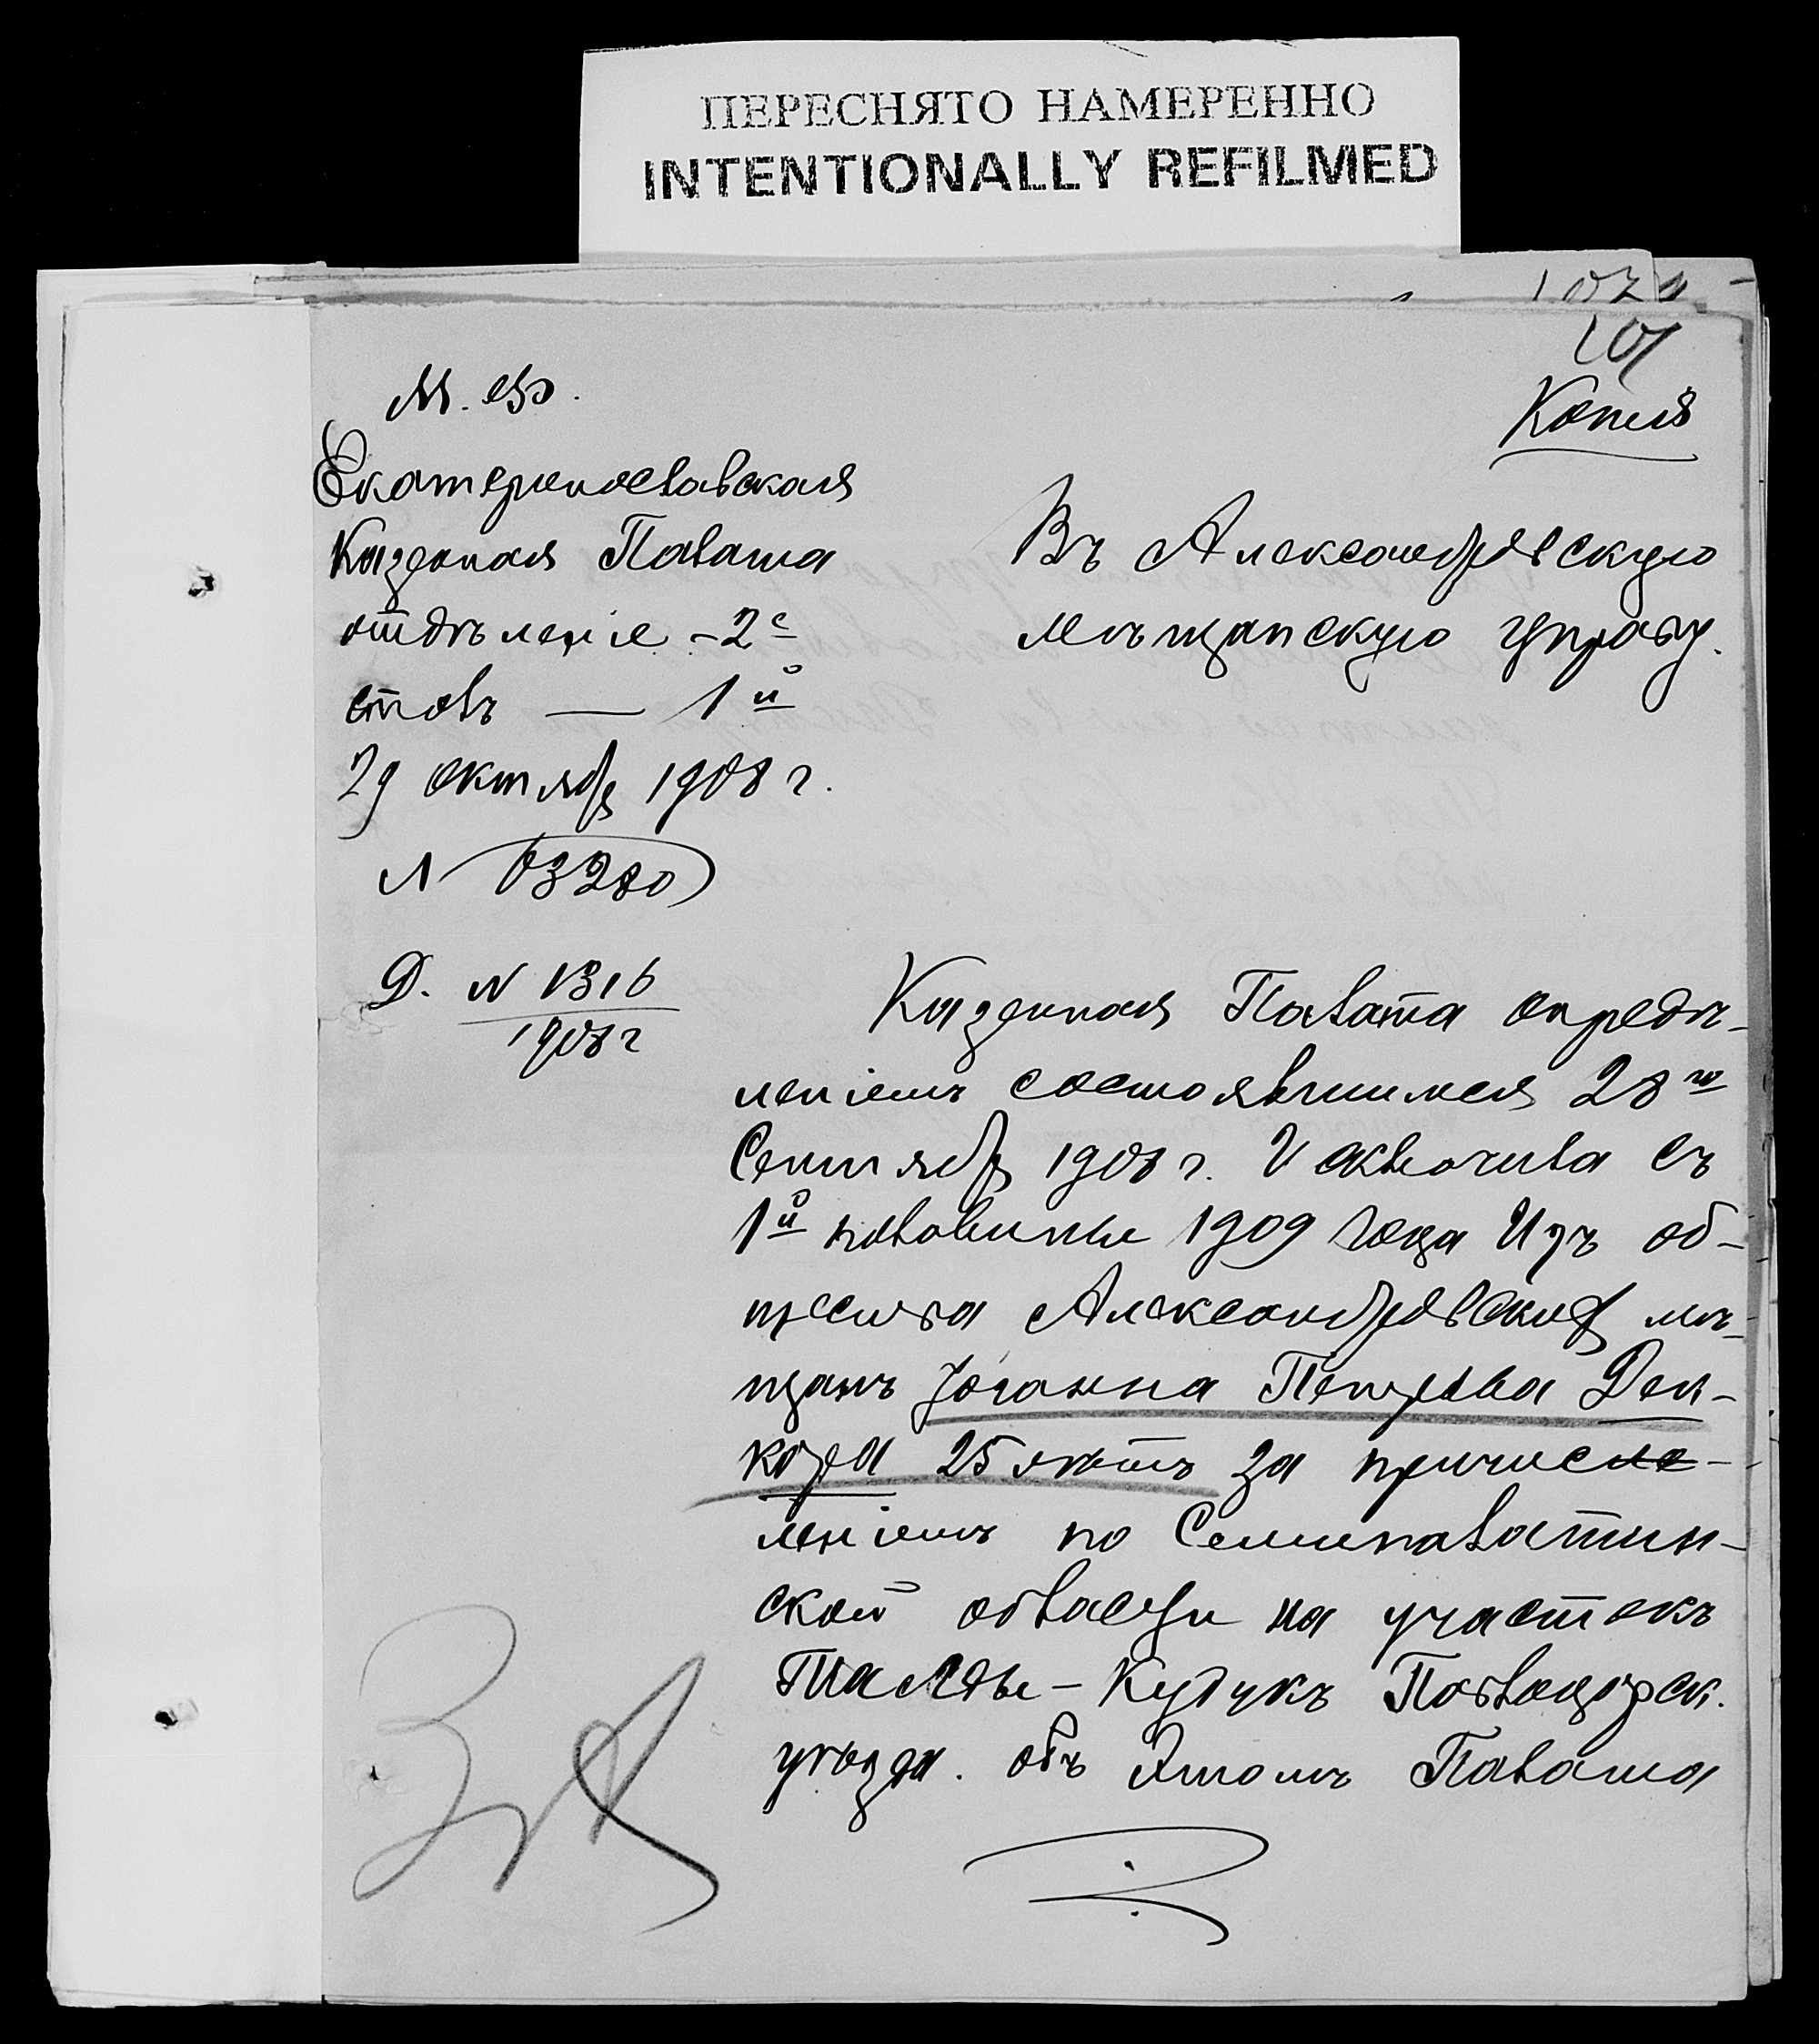 ПЕРЕСНЯТО НАМЕРЕННО
INTENTIONALLY REFILMED
107
Копия
М. Ф.
Екатеринославская
Казенная Палата
отдѣленіе - 2е
столъ — 1й
29 октября 1908 г.
N 63280
Д. N 1316
1908 г
Въ Александровскую
мѣщанскую управу.
Казенная Палата опредѣ-
леніемъ состоявшимся 28го
Сентября 1908 г. исключила съ
1й половины 1909 года Изъ об-
щества Александровских мѣ-
щанъ Іоганна Петрова Дек-
кера 25 лѣтъ за причисле-
леніемъ по Семипалатин-
ской области на участокъ
Талды-Кудукъ Павлодарск.
уѣзда. объ Этомъ Палата